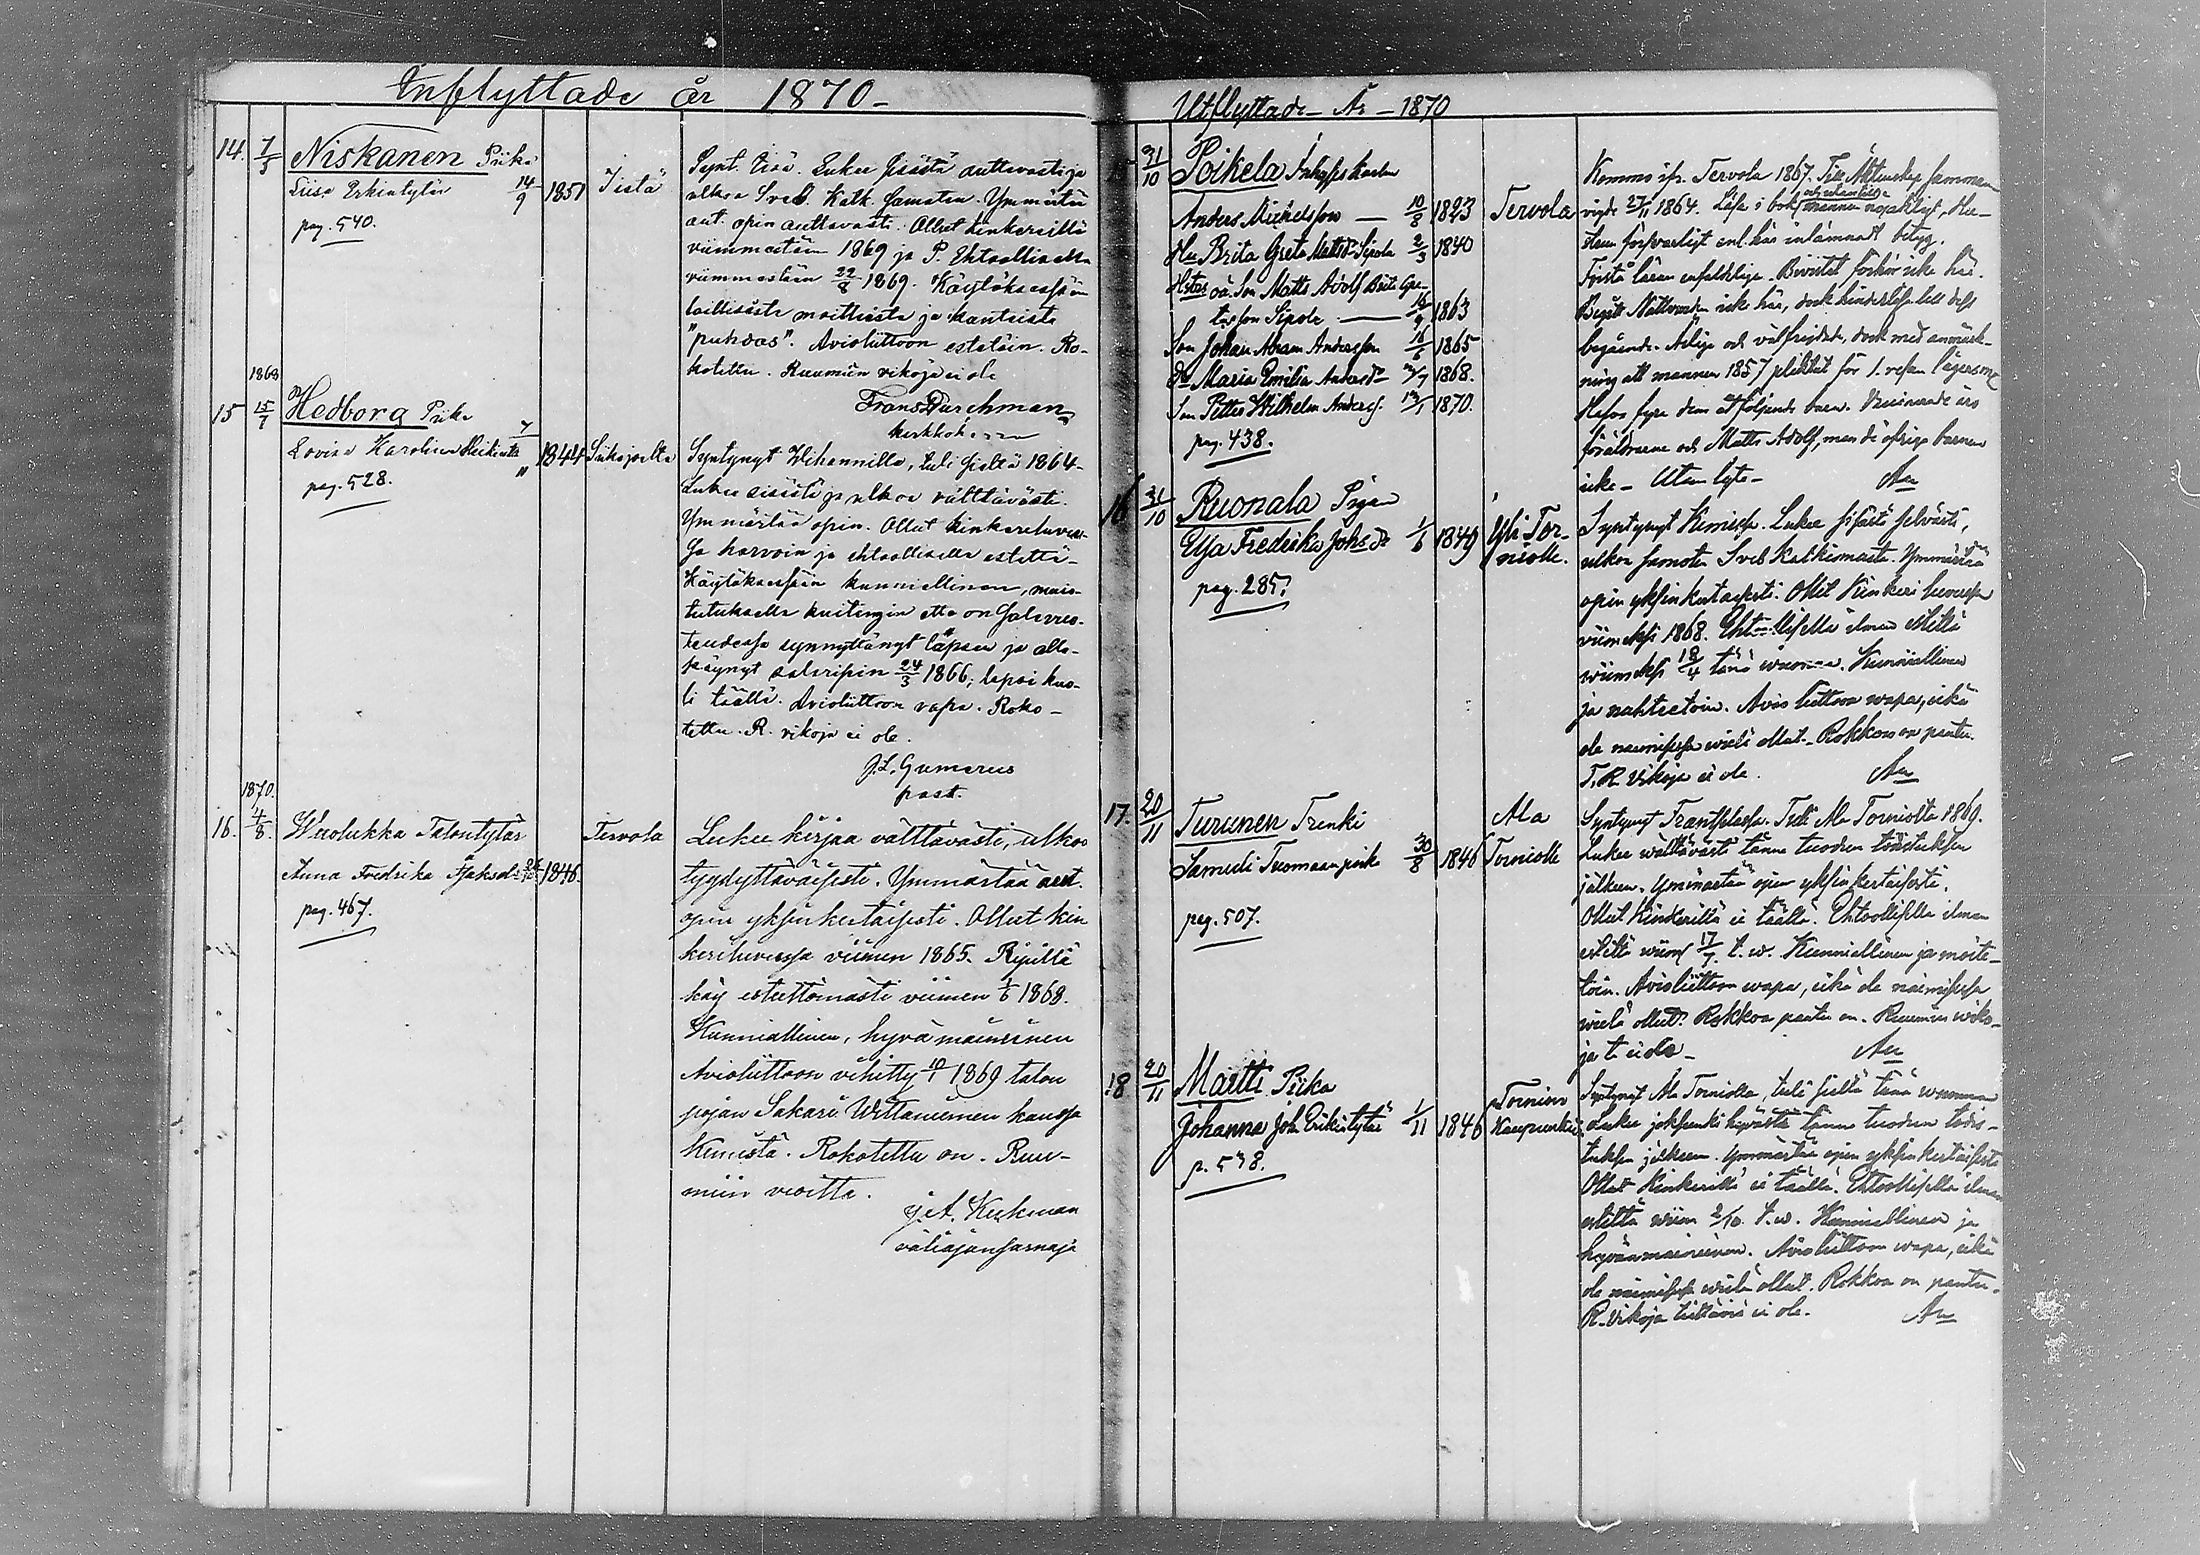 Inflyttade år 1870-
14. 7/5 Niskanen Piika
Liisa Erkintytär 14/9 1851 Iistä
pag. 540.
Synt. Iisä. Lukee sisästä auttavasti ja
ulkoa Sveb. Katk. samaten. Ymmärtää
aut. opin auttavasti. Ollut kinkerillä
viimmestäin 1869 ja P. Ehtoollisella
viimmestäin 22/8 1869. Käytöksessään
laillisesta moitteesta ja
"puhdas". Avioliittoon estetöin. Ro-
kotettu. Ruumiin vikoja ei ole
Frans Durchman
1868
15 15/7 Hedborg Piika
Lovisa Karolina Heikint. 7/" 1844 Siikajoelta
pag. 528.
Syntynyt Vihannilla, tuli sieltä 1864-
Lukee sisästä ja ulkoa välttävästi.
Ymmärtää opin. Ollut kinkereluvus-
sa harvoin ja ehtoollisella estettä-
Käytöksessään kunniallinen, muis-
tutuksella kuitengin että on salavuo-
teudessa synnyttänyt lapsen ja alle-
käynyt salaripin 24/3 1866; lapsi kuo-
li täällä. Avioliittoon vapa. Roko-
tettu. R. vikoja ei ole.
J. L. Gumerus
past.
1870.
16. 4/8. Wuolukka Talontytär
Anna Fredrika 1846. Tervola
pag. 467.
Lukee kirjaa välttävästi, ulkoo
tyydyttäväisesti. Ymmärtää aut.
opin yksinkertaisesti. Ollut kin
keriluvussa viimen 1865. Ripillä
käy esteettömästi viimen 1/6 1868.
Kunniallinen, hyvä maineinen
Avioliittoon vihitty 1869 talon
pojan Sakari Wittaniemen kanssa
Kemistä. Rokotettu on. Ruu-
miin vioitta.
väliajansarnaja
Utflyttade - År - 1870
31/10 Poikela Inhyses karlen
Anders Mickelsson — 10/8 1823 Tervola
Hu Brita Greta Mattsdr Sipola 2/3 1840
Hstrus oä. Son Matts Adolf Brita Gre-
tasson Sipola — 16/9 1863
Son Johan Abram Andersson 16/6 1865
Dr Maria Emilia Andersdr 1868.
Son Petter Wilhelm Anderss. 1870.
pag. 438.
Kommo ifr. Tervola 1867. Till Äktenskap samman
vigde 27/11 1864. Läsa i bok och utantill
mannen nöjaktigt, Hu-
strun försvarligt enl. här inlämnadt betyg.
Förstå läran enfaldeligen. Bivistat förhör icke här.
Begått Nattvarden icke här, dock hinderlösa till dess
begående. Ärliga och välfrejdade, dock med anmärk-
ning att mannen 1857 pliktat för 1. resan lägersmål
Hafva fyra dem åtföljande barn. Vaccinerade äro
föräldrarne och Matts Adolf, men de öfriga barnen
icke - Utan lyte -
16 31/10 Ruonala Pigan
Eva Fredrika Johsdr 1/6 1849 Yli Tor-
niolle.
pag. 285.
Syntynyt Kemissä. Lukee sisästä selvästi,
ulkoa samoten Sveb Katkismusta. Ymmärtää
opin yksinkertaisesti. Ollut Kinkeri luvussa
viimeksi 1868. Ehtoollisella ilman estettä
viimeksi 18/4 tänä vuonna. Kunniallinen
ja nuhteetoin. Avioliittoon wapa, eikä
ole naimisissa wielä ollut - Rokkoa on pantu.
T. R. Vikoja ei ole.
17. 20/11 Turunen Trenki
Samuli Tuomaan poika 30/8 1846 Ala
Torniolle
pag. 507.
Syntynyt Frantsilassa. Tuli Ala Torniosta 1869.
Lukee wälttävästi tänne tuodun todistuksen
jälkeen. Ymmärtää opin yksinkertaisesti.
Ollut Kinkerillä ei täällä. Ehtoollisella ilman
estettä wiim 17/7. t. w. Kunniallinen ja moite-
toin. Avioliittoon wapa, eikä ole naimisissa
wielä ollut. Rokkoa pantu on. Ruumiin wiko-
ja t. ei ole -
18 20/11 Martti Piika
Johanna Joh. Erikintytär 1/11 1846 Tornion
Kaupunkiin
p. 538.
Syntynyt Ala Torniolla, tuli sieltä tänä wuonna
Lukee joksenki hyvästi tänne tuodun todis-
tuksen jälkeen. Ymmärtää opin yksinkertaisesti
Ollut Kinkerillä ei täällä. Ehtoollisella ilman
estettä wiim 2/10. t. w. Kunniallinen ja
hyvänmaineinen. Avioliittoon wapa, eikä
ole naimisissa wielä ollut. Rokkoa on pantu.
R. Vikoja tiettäviä ei ole.